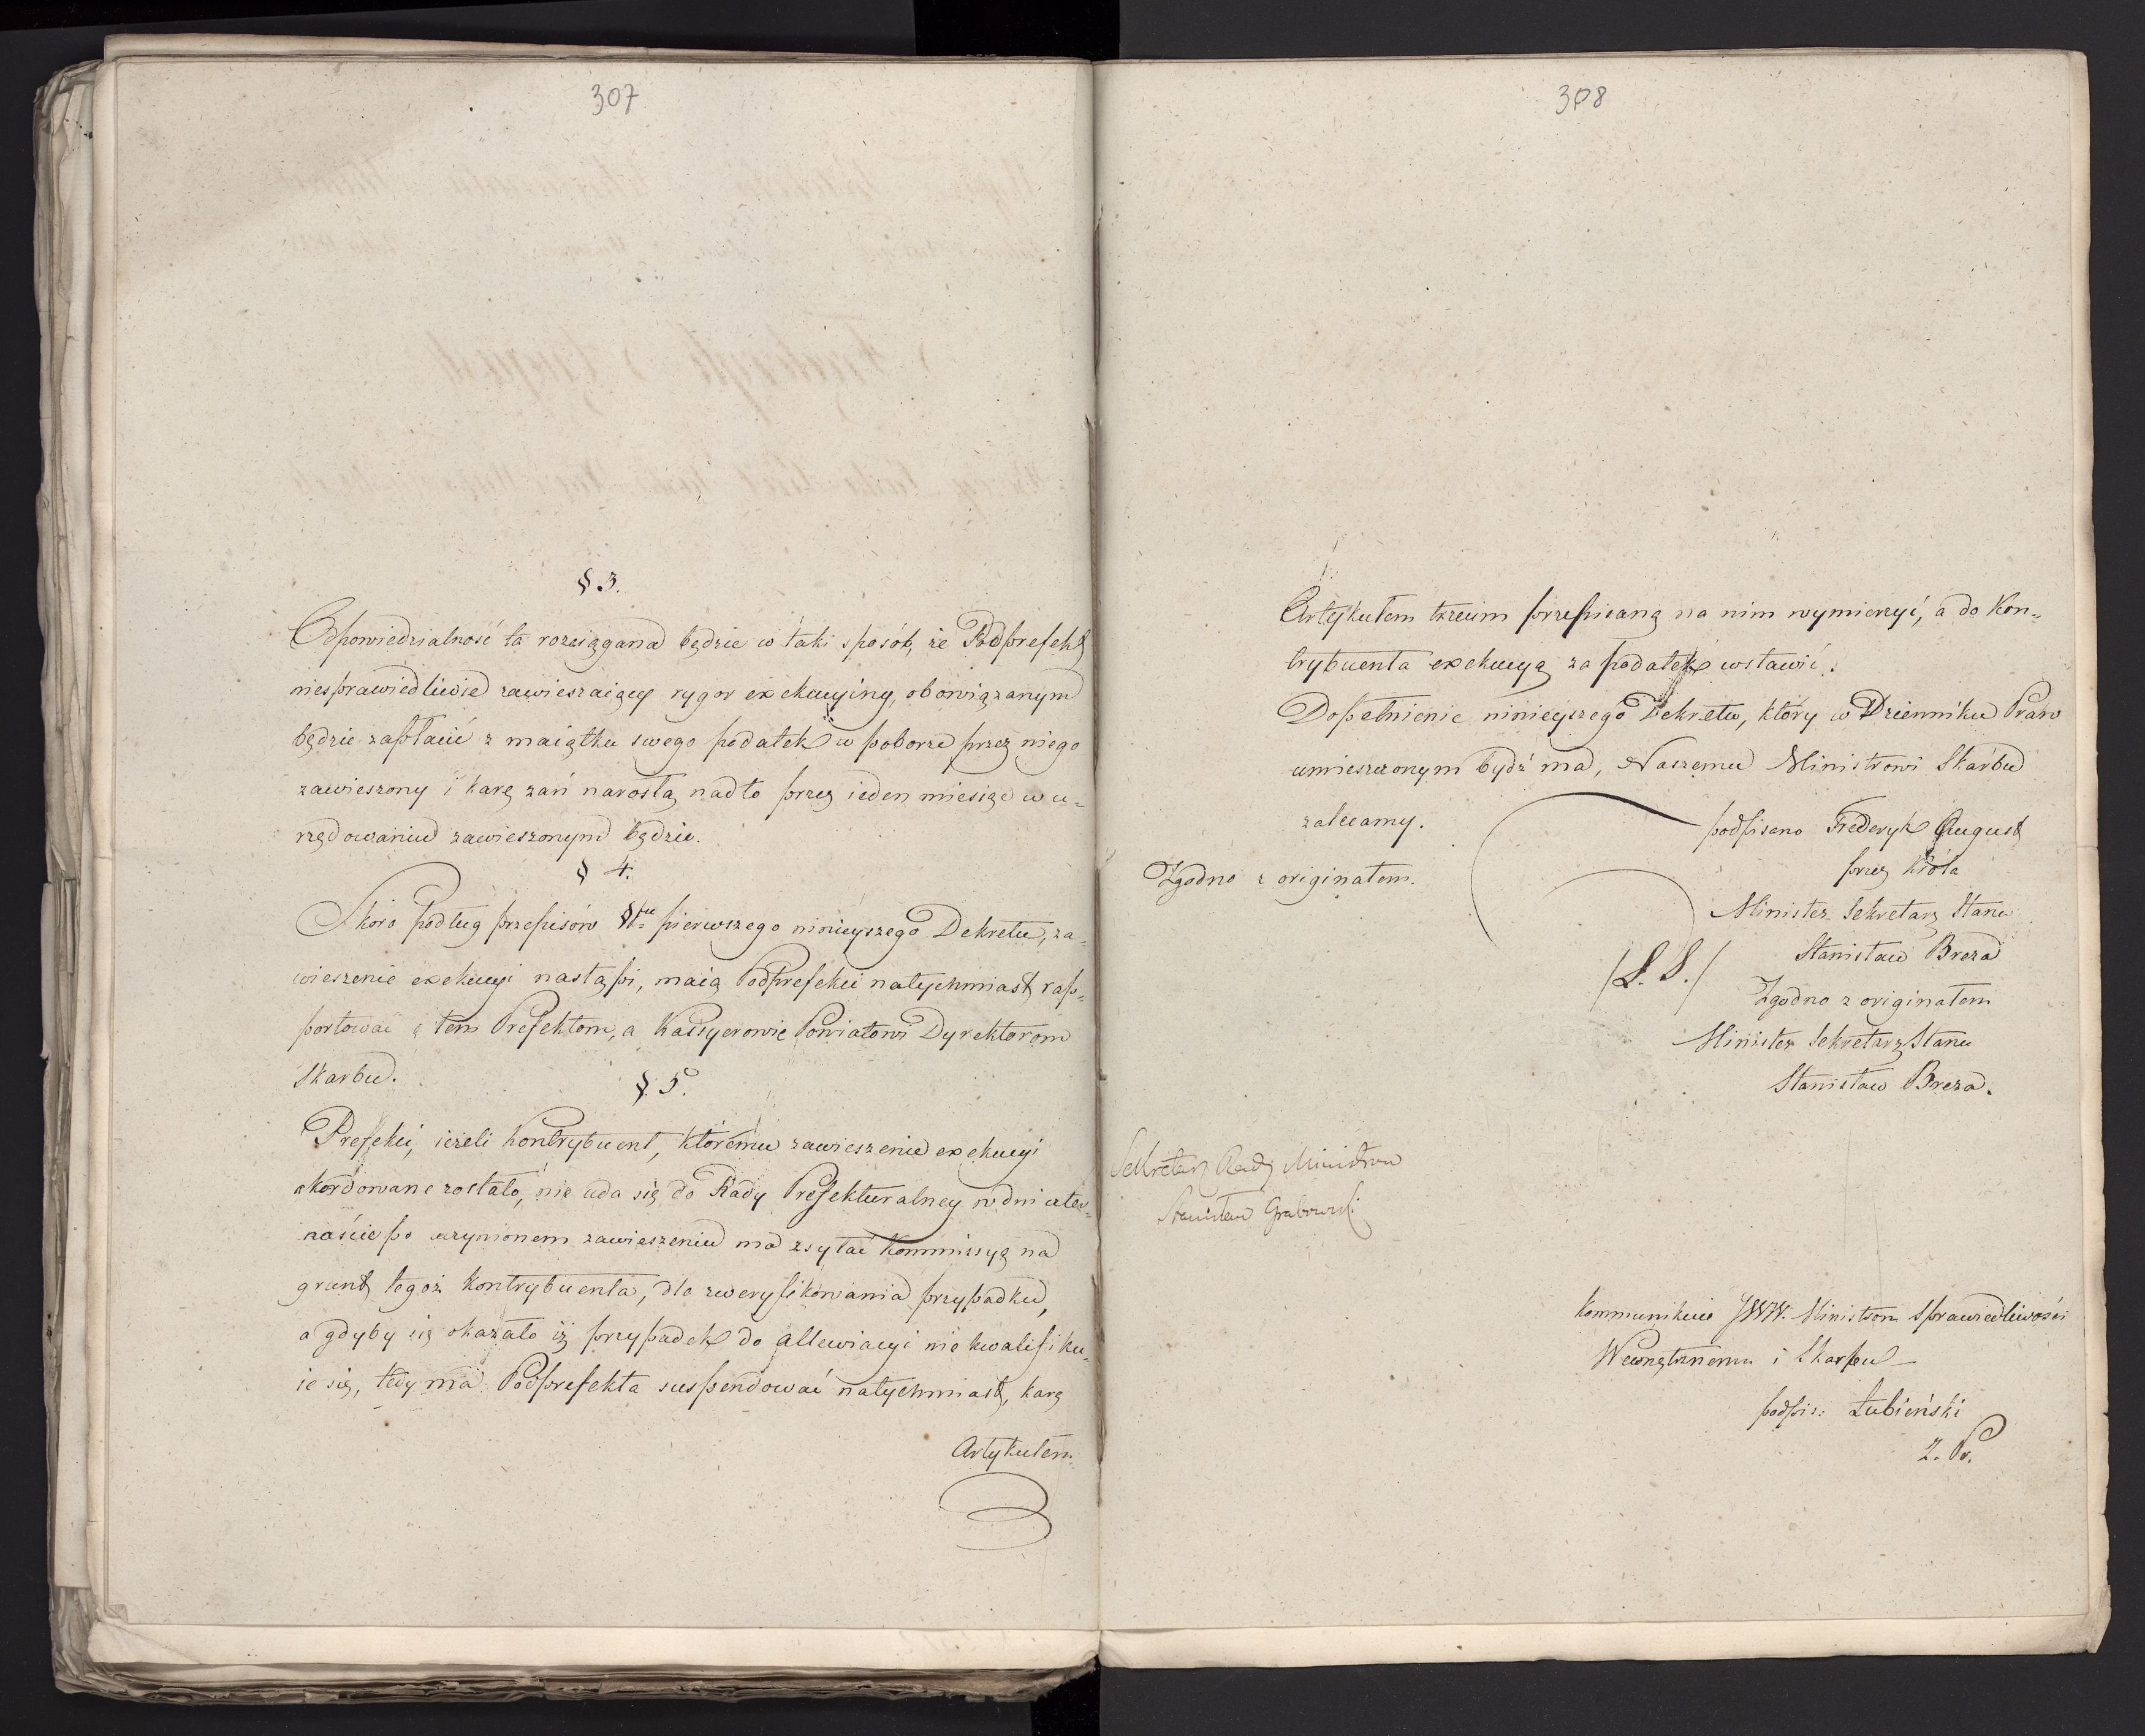 307
§ 3.
Odpowiedzialność ta rozciągana będzie w taki sposób, że Podprefekt
niesprawiedliwie zawieszaiący rygor exekucyiny, obowiązanym
będzie zapłacić z maiątku swego podatek w poborze przez niego
zawieszony i karę zań narosłą, nadto przez ieden miesiąc w u-
rzędowaniu zawieszonym będzie.
§ 4.
Skoro podług przepisów §fu pierwszego ninieyszego Dekretu, za-
wieszenie exekucyi nastąpi, maią Podprefekci natychmiast rap-
portować o tem Prefektom, a Kassyerowie Powiatowi Dyrektorom
Skarbu.
§. 5.
Prefekci, ieżeli Kontrybuent, któremu zawieszenie exekucyi
akordowane zostało, nie uda się do Rady Prefekturalney w dni czter-
naście po uczynionem zawieszeniu ma zsyłać Kommissyą na
grunt tegoż Kontrybuenta, dla zweryfikowania przypadku,
a gdyby się okazało iż przypadek do allewiacyi nie kwalifiku-
ie się, tedy ma Podprefekta suspendować natychmiast, karę
Artykułem
308
Artykułem trzecim przepisaną na nim wymierzyć, a do Kon-
trybuenta exekucyą za podatek wstawić.
Dopełnienie ninieyszego Dekretu, który w Dzienniku Praw
umieszczonym bydź ma, Naszemu Ministrowi Skarbu
zalecamy.
podpisano Frederyk August
przez Króla
Zgodno z originałem.
Minister Sekretarz Stanu
Stanisław Breza
/L. S./
Zgodno z originałem
Minister Sekretarz Stanu
Stanisław Breza.
Sekretarz Rady Ministrow
Stanisław Grabowski
Kommunikuie JWW. Ministrom Sprawiedliwości
Wewnętrznemu i Skarbu
podpis: Łubieński
Z. Pr.